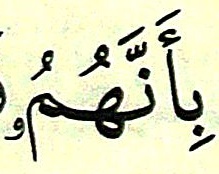 بِأَنَّهُمُۥ